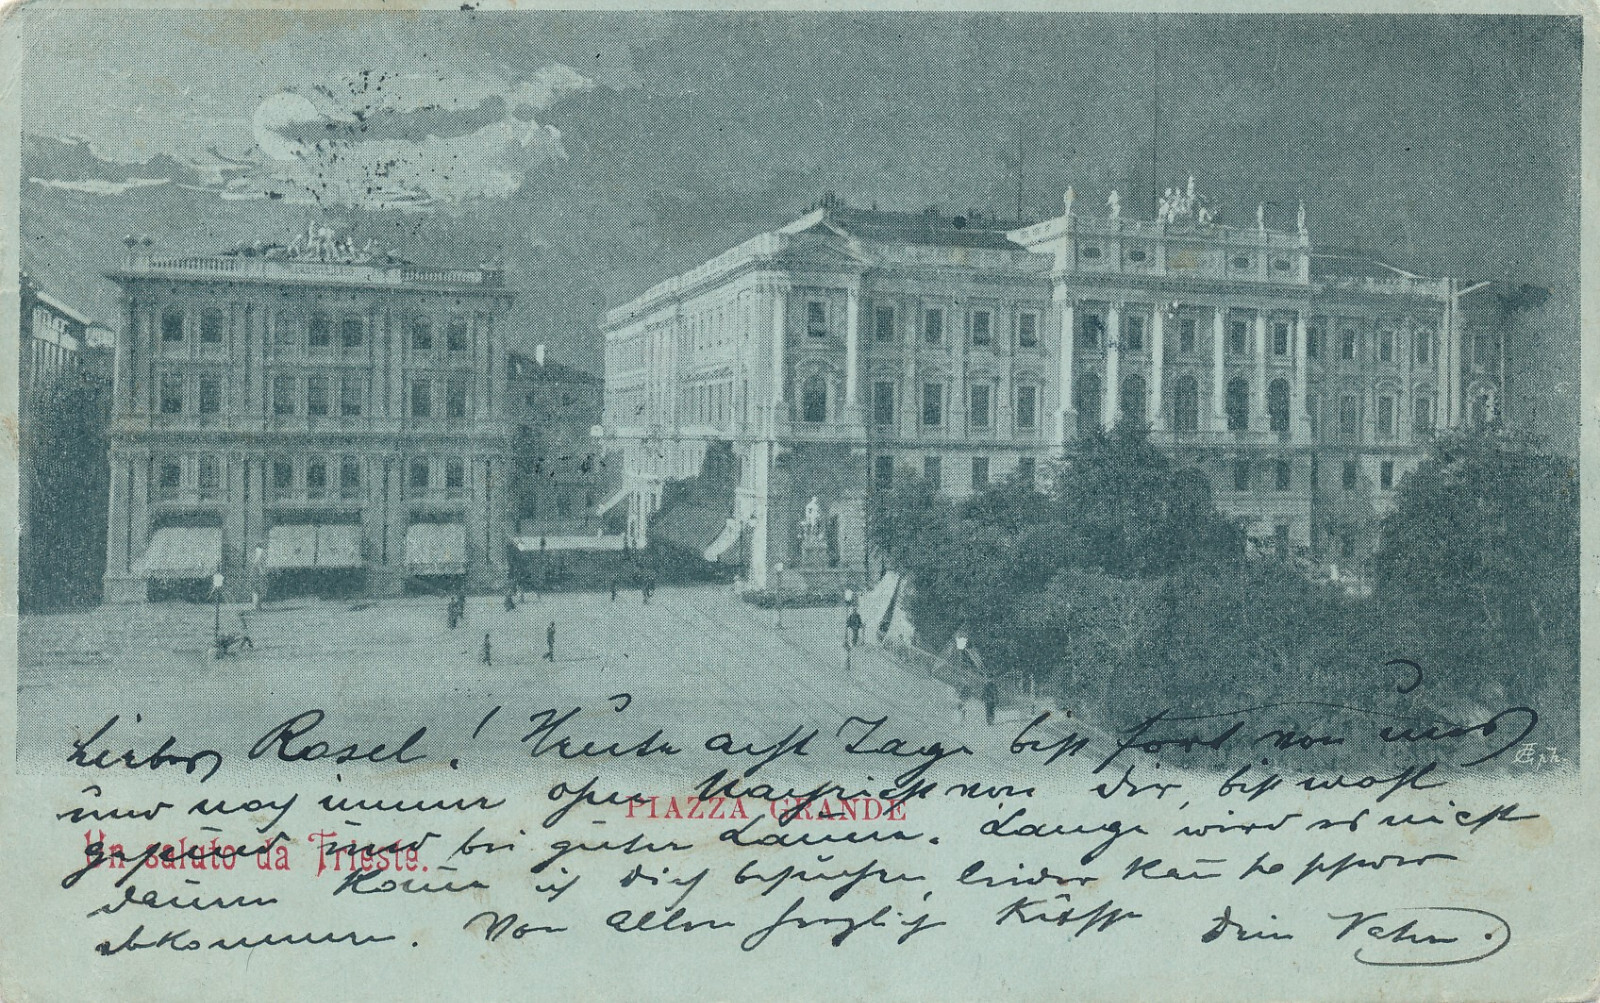 Liebes Rosel! Heute acht Tage bist fort von uns
und noch immer ohne Nachricht von Dir, bist wohl
PIAZZA GRANDE
gesund und bei guter Laune. Lange wird es nicht
Un saluto da Trieste.
dauern komme ich Dich besuchen, leider kan so schwer
abkommen. Von Allen herzlich Küsse Dein Vater.